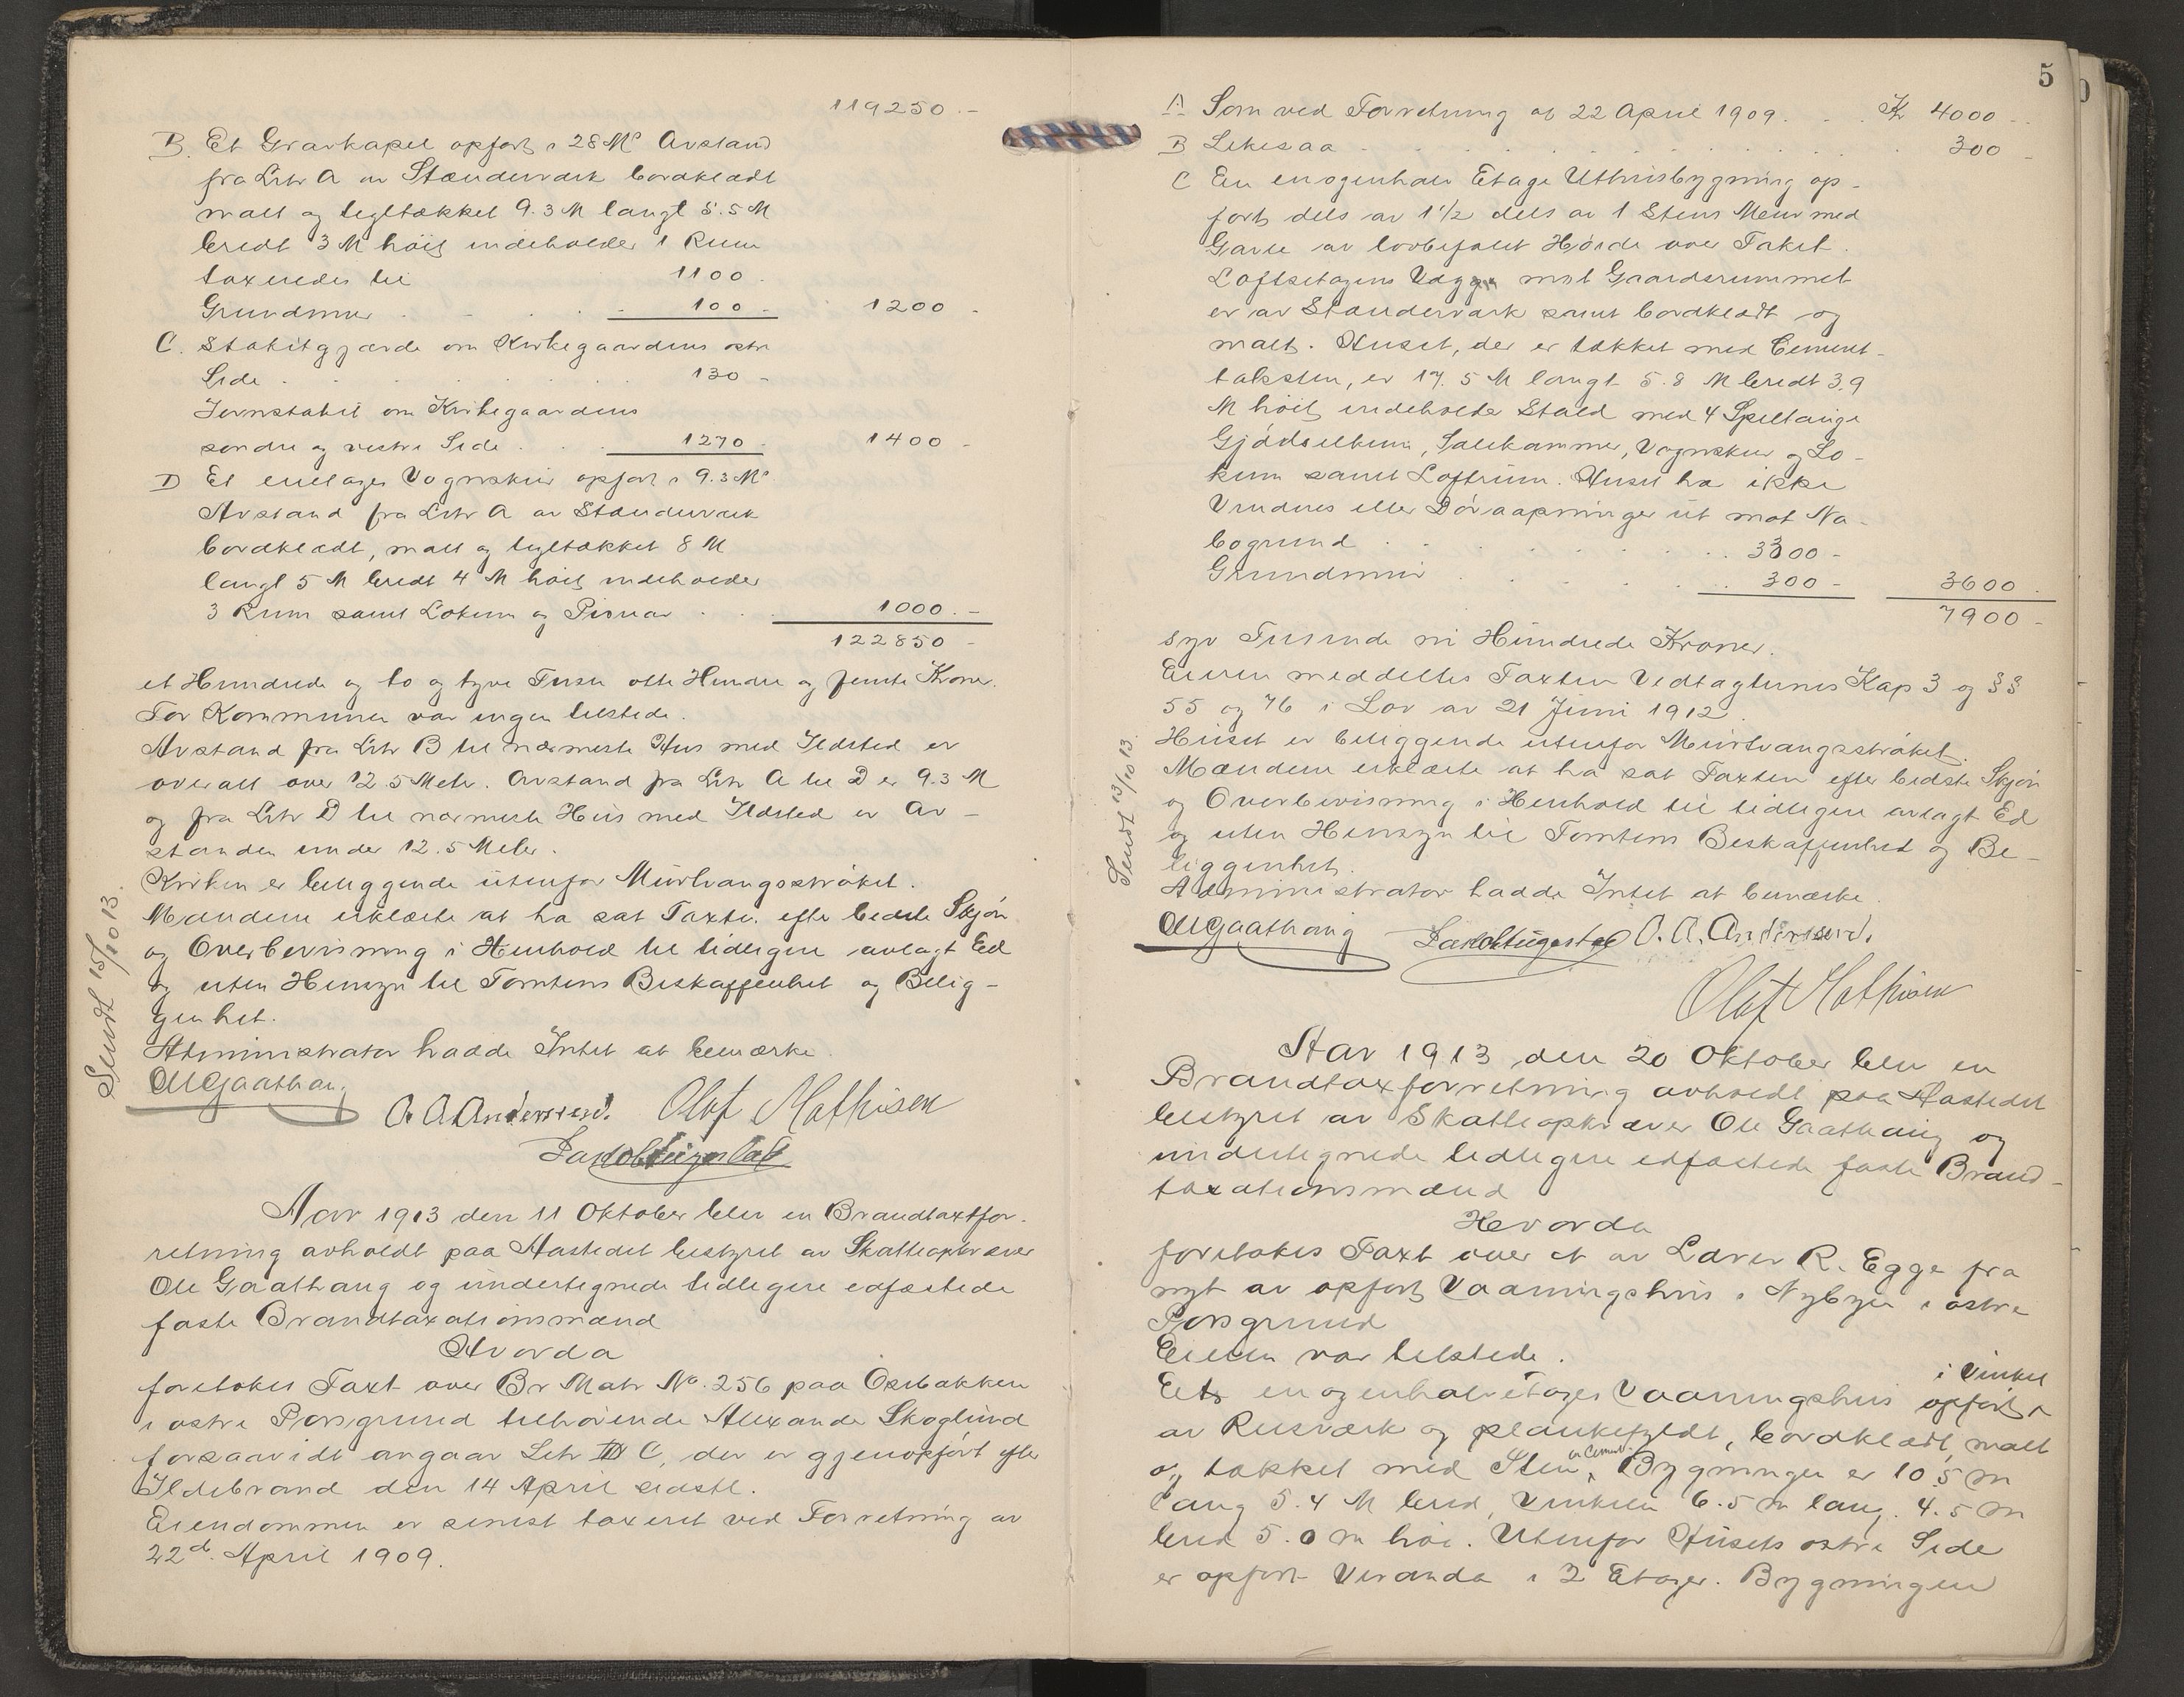 119250.-
B. Et Gravkapel opført i 28 M's Avstand
fra Litr A av Stænderværk bordklædt
malt og tegltækket 9.3 M langt 5.5 M
bredt 3 M höit indeholder 1 Rum
taxeredes til 1100.
Grundmur 100 - 1200 -
C. Stakitgjærde om Kirkegaardens østre
Side 130 -
Jernstakit om Kirkegaardens
søndre og vestre Side 1270 - 1400 -
D Et enetages Vognskur opført i 9.3 M's
Avstand fra Litr A av Stænderværk
bordklædt, malt og tegltækket 8 M
langt 5 M bredt 4 M höit indeholder
3 Rum samt Lokum og Pissuar 1000.-
122850 -
et Hundrede og to og tyve Tusen otte Hundre og femti Kroner.
For Kommunen var ingen tilstede.
Avstand fra Litr B til nærmeste Hus med Ildsted er
overalt over 12 5 Meter. Avstand fra Litr A til D er 9.3 M
og fra Litr D til nærmeste Hus med Ildsted er Av-
standen under 12.5 Meter.
Kirken er beliggende utenfor Murtvangsstrøket.
Mændene erklærte at ha sat Taxten efter bedste Skjøn
og Overbevisning i Henhold til tidligere avlagt Ed
og uten Hensyn til Tomtens Beskaffenhet og Belig-
genhet.
Administrator hadde Intet at bemærke.
Ole Gaathaug
A. A. Andersen. Olaf Mathisen
Sendt 15/10 13.
Aar 1913 den 11 Oktober blev en Brandtaxtfor-
retning avholdt paa Aastedet bestyret av Skatteopkræver
Ole Gaathaug og undertegnede tidligere edfæstede
faste Brandtaxationsmænd
Hvorda
foretokes Taxt over Br Matr No. 256 paa Osebakken
i østre Porsgrund tilhörende Alexander Skoglund
forsaavidt angaar Litr C, der er gjenopført efter
Ildebrand den 14 April sidstl.
Eiendommen er senest taxeret ved Forretning av
22d. April 1909.
5
A Som ved Forretning av 22 April 1909. Kr 4000 -
B Likesaa 300 -
C En enogenhalv Etage Uthusbygning op-
ført dels av 1 1/2 dels av 1 Stens Mur med
Gavle av lovbefalet Høide over Taket.
Loftsetagens Vægge mot Gaardsrummet
er av Stænderværk samt bordklædt og
malt. Huset, der er tækket med Cement-
taksten, er 17.5 M langt 5.8 M bredt 3.9
M höit indeholder Stald med 4 Spiltauge
Gjödselkum, Salekammer, Vognskur og Lo-
kum samt Loftrum. Huset har ikke
Vindues eller Döraapninger ut mot Na-
bogrund 3300 -
Grundmur 300 - 3600 .
7900 -
syv Tusende ni Hundrede Kroner.
Eieren meddeltes Taxten Vedtagternes Kap 3 og §§
55 og 76 i Lov av 21 Juni 1912.
Huset er beliggende utenfor Murtvangsstrøket.
Mændene erklærte at ha sat Taxten efter bedste Skjøn
og Overbevisning i Henhold til tidligere avlagt Ed
og uten Hensyn til Tomtens Beskaffenhed og Be-
liggenhet.
Administrator hadde Intet at bemærke.
Ole Gaathaug A. A. Andersen.
Olaf Mathisen
Sendt 13/10 13.
Aar 1913 den 20 Oktober blev en
Brandtaxforretning avholdt paa Aastedet
bestyret av Skatteopkræver Ole Gaathaug og
undertegnede tidligere edfæstede faste Brand-
taxationsmænd
Hvorda
foretokes Taxt over et av Lærer R. Egge fra
nyt av opført Vaaningshus i Nybyen i østre
Porsgrund
Eieren var tilstede.
Et enogenhalvetages Vaaningshus opført i Vinkel
av Reisværk og plankefyldt, bordklædt, malt
og tækket med Sten av Cement. Bygningen er 10.5 m
lang 5.4 M bred, Vinkelen 6.5 m lang. 4.5 m
bred 5.0 m høi. Utenfor Husets østre Side
er opført Veranda i 2 Etager. Bygningen